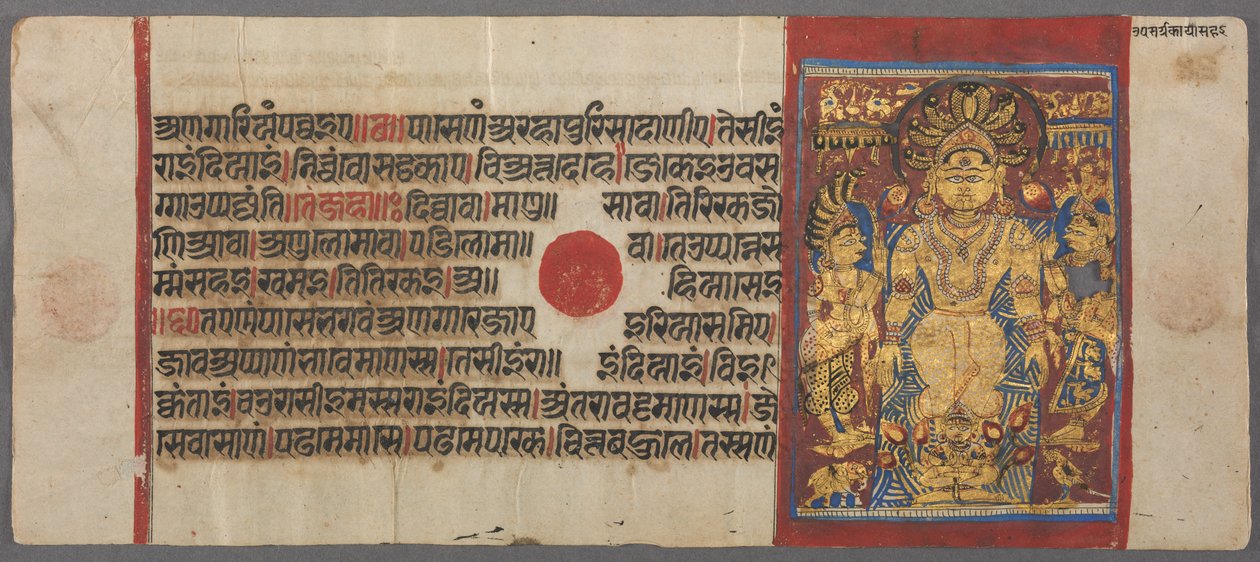 अणगारिअंपव्वइए॥छ॥पासेणंअरहापुरिसादाणीए।तेसीइं
राइंदिआइं।निच्चंवोसट्ठकाए।चिअत्तदेहे॥जेकेइउवस
ग्गाउप्पज्जंति॥तंजहा॥ः दिव्वावा।माणु॥ सावा।तिरिरकजो
णिआवा।अणुलोमावा।पडिलोमा॥ वा।तेउप्पन्नेस
म्मंसहइ।खमइ।तितिरकइ।अ॥ हिआसेइ
तएणंपासेभगवंअणगारेजाए इरिआसमिए।
जावअप्पाणंभावेमाणस्स।तेसीइंरा॥ इंदिआइं।विइ
क्कंताइं।चउरासीइमस्सराइंदिअस्स।अंतरावट्टमाणस्स।जे
सेवासाणं।पढमेमासे।पढमेपरके।चित्तबहुले।तस्सणं